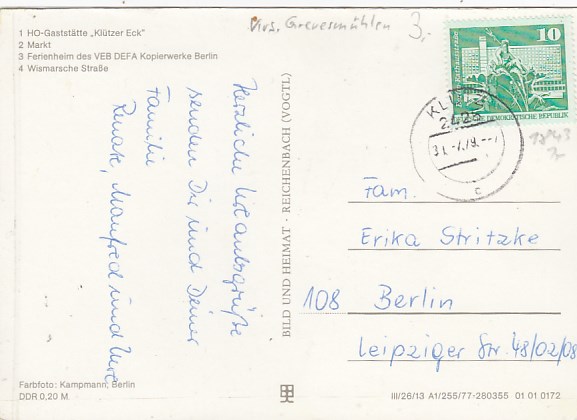 1 HO-Gaststätte „Klützer Eck"
2 Markt
3 Ferienheim des VEB DEFA Kopierwerke Berlin
4 Wismarsche Straße
Krs. Grevesmühlen
3,-
10
DEMOKRATISCHE REPUBLIK
KLÜTZ
2423
31.-7.79.--7
c
Herzliche Urlaubsgrüße
senden Dir und Deiner
Familie
Renate, Manfred und Uwe
BILD UND HEIMAT · REICHENBACH (VOGTL)
Fam.
Erika Stritzke
108 Berlin
Leipziger Str. 48/02/08
Farbfoto: Kampmann, Berlin
DDR 0,20 M
III/26/13 A1/255/77-280355 01 01 0172